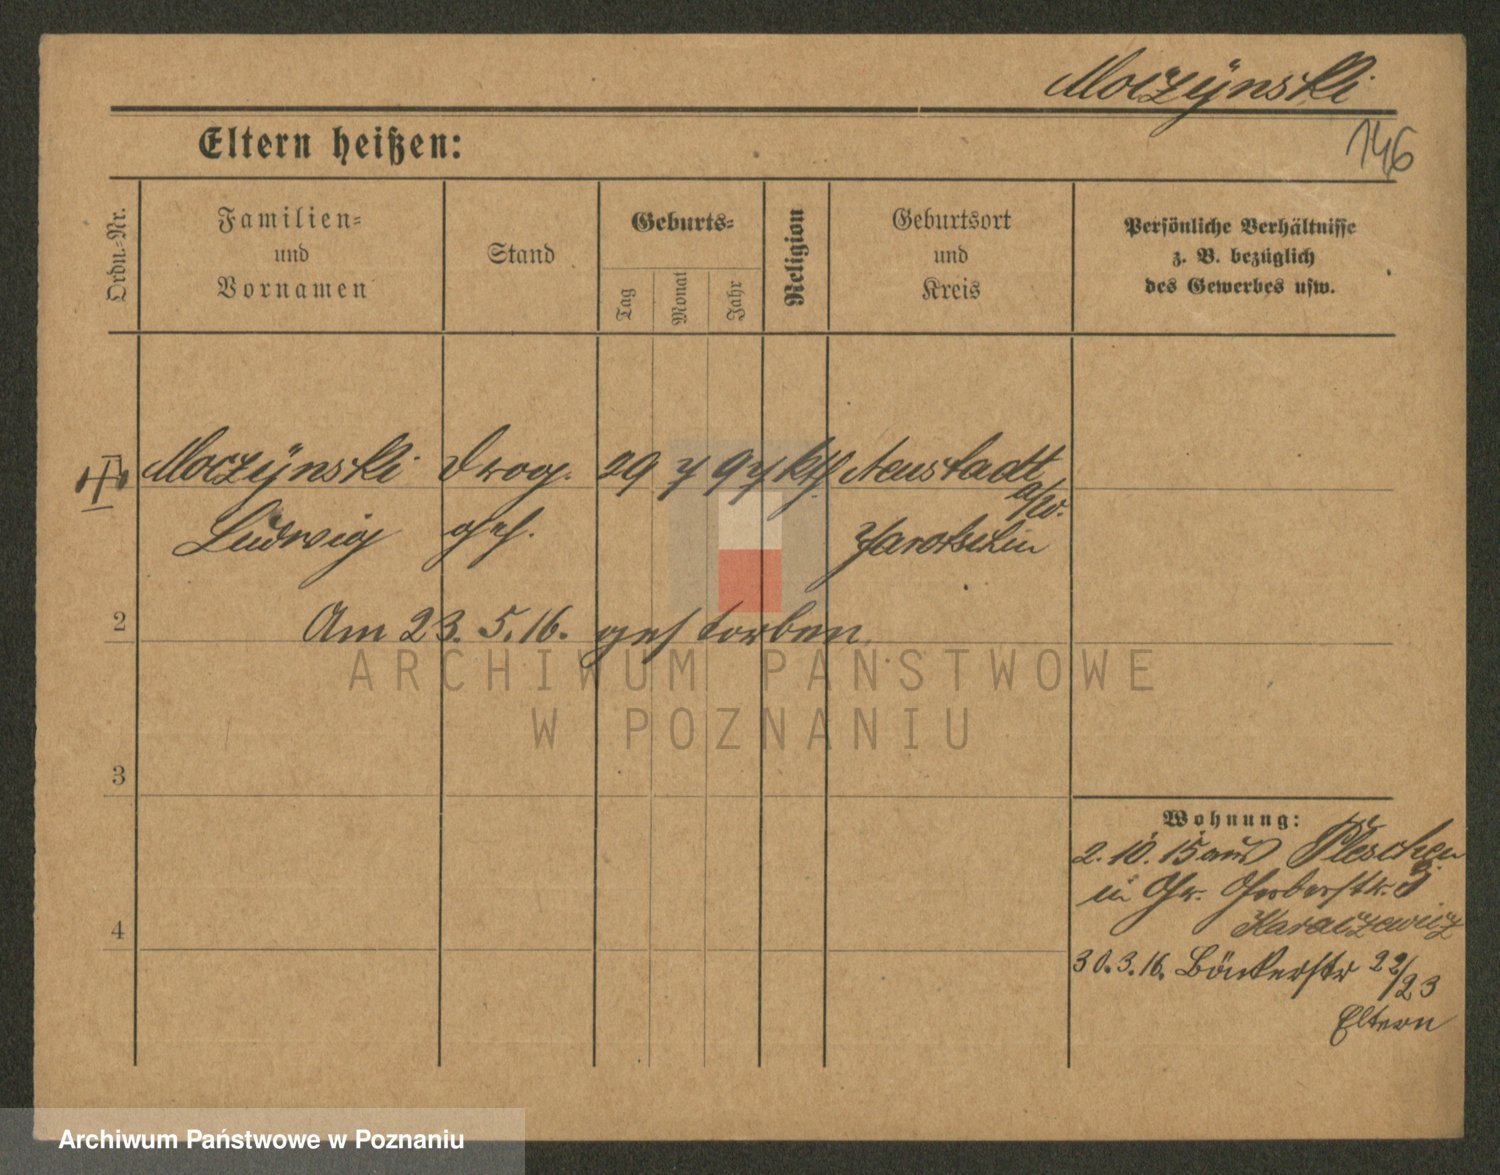 Moczynski
146
Eltern heißen:
Ordn.-Nr.
Familien-
und
Vornamen
Stand
Geburts-
Tag
Monat
Jahr
Religion
Geburtsort
und
Kreis
Persönliche Verhältnisse
z. B. bezüglich
des Gewerbes usw.
Moczynski Drog. 29 7 97 kth Neustadt
a/W.
Ludwig geh. Jarotschin
2
Am 23. 5. 16. gestorben.
ARCHIWUM PAŃSTWOWE
W POZNANIU
3
Wohnung:
2. 10. 15 aus Pleschen
in Gr. Gerberstr. 3
Karaczewicz
4
30. 3. 16. Bäckerstr 22/23
Eltern
Archiwum Państwowe w Poznaniu